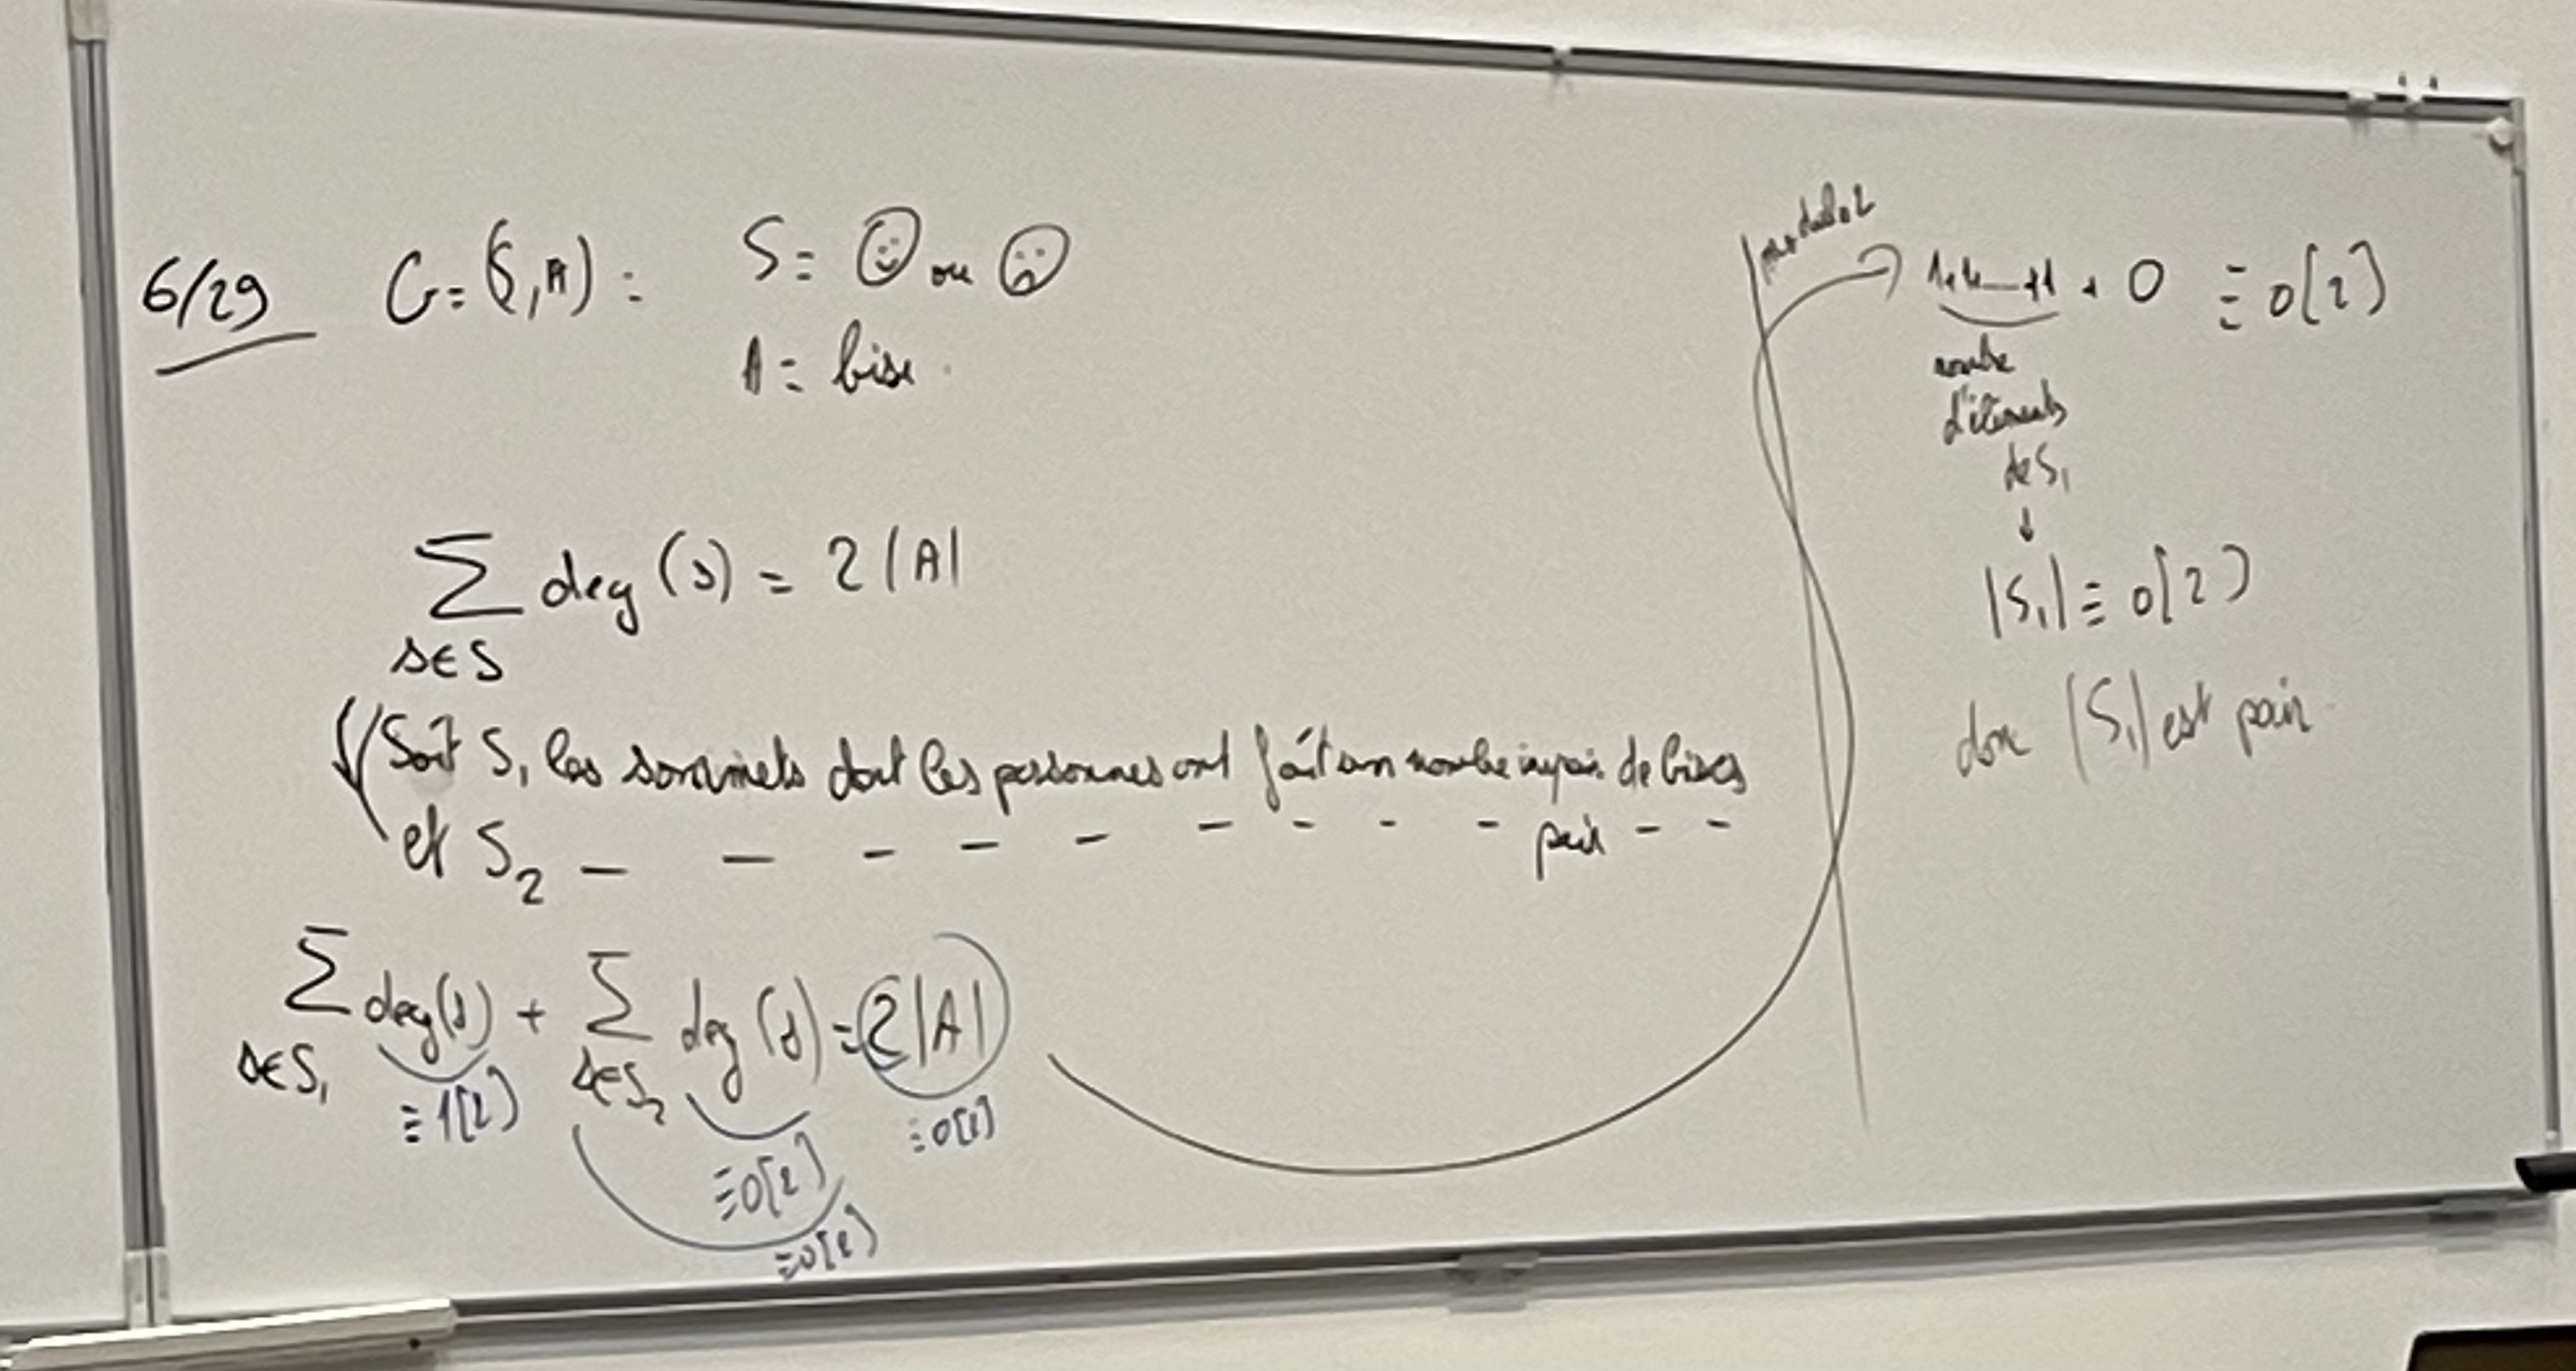 6/29 G = (S, A) : S = ☺ ou ☹
A = bise
∑ deg(s) = 2|A|
s∈S
Soit S₁ les sommets dont les personnes ont fait un nombre impair de bises
et S₂ — — — — — - - - - pair - -
∑ deg(s) + ∑ deg(s) = 2|A|
s∈S₁ s∈S₂
≡1[2] ≡0[2] ≡0[2]
≡0[2]
modulo 2
1+1+—+1 + 0 ≡ 0[2]
nombre
d'éléments
de S₁
↓
|S₁| ≡ 0[2]
donc |S₁| est pair